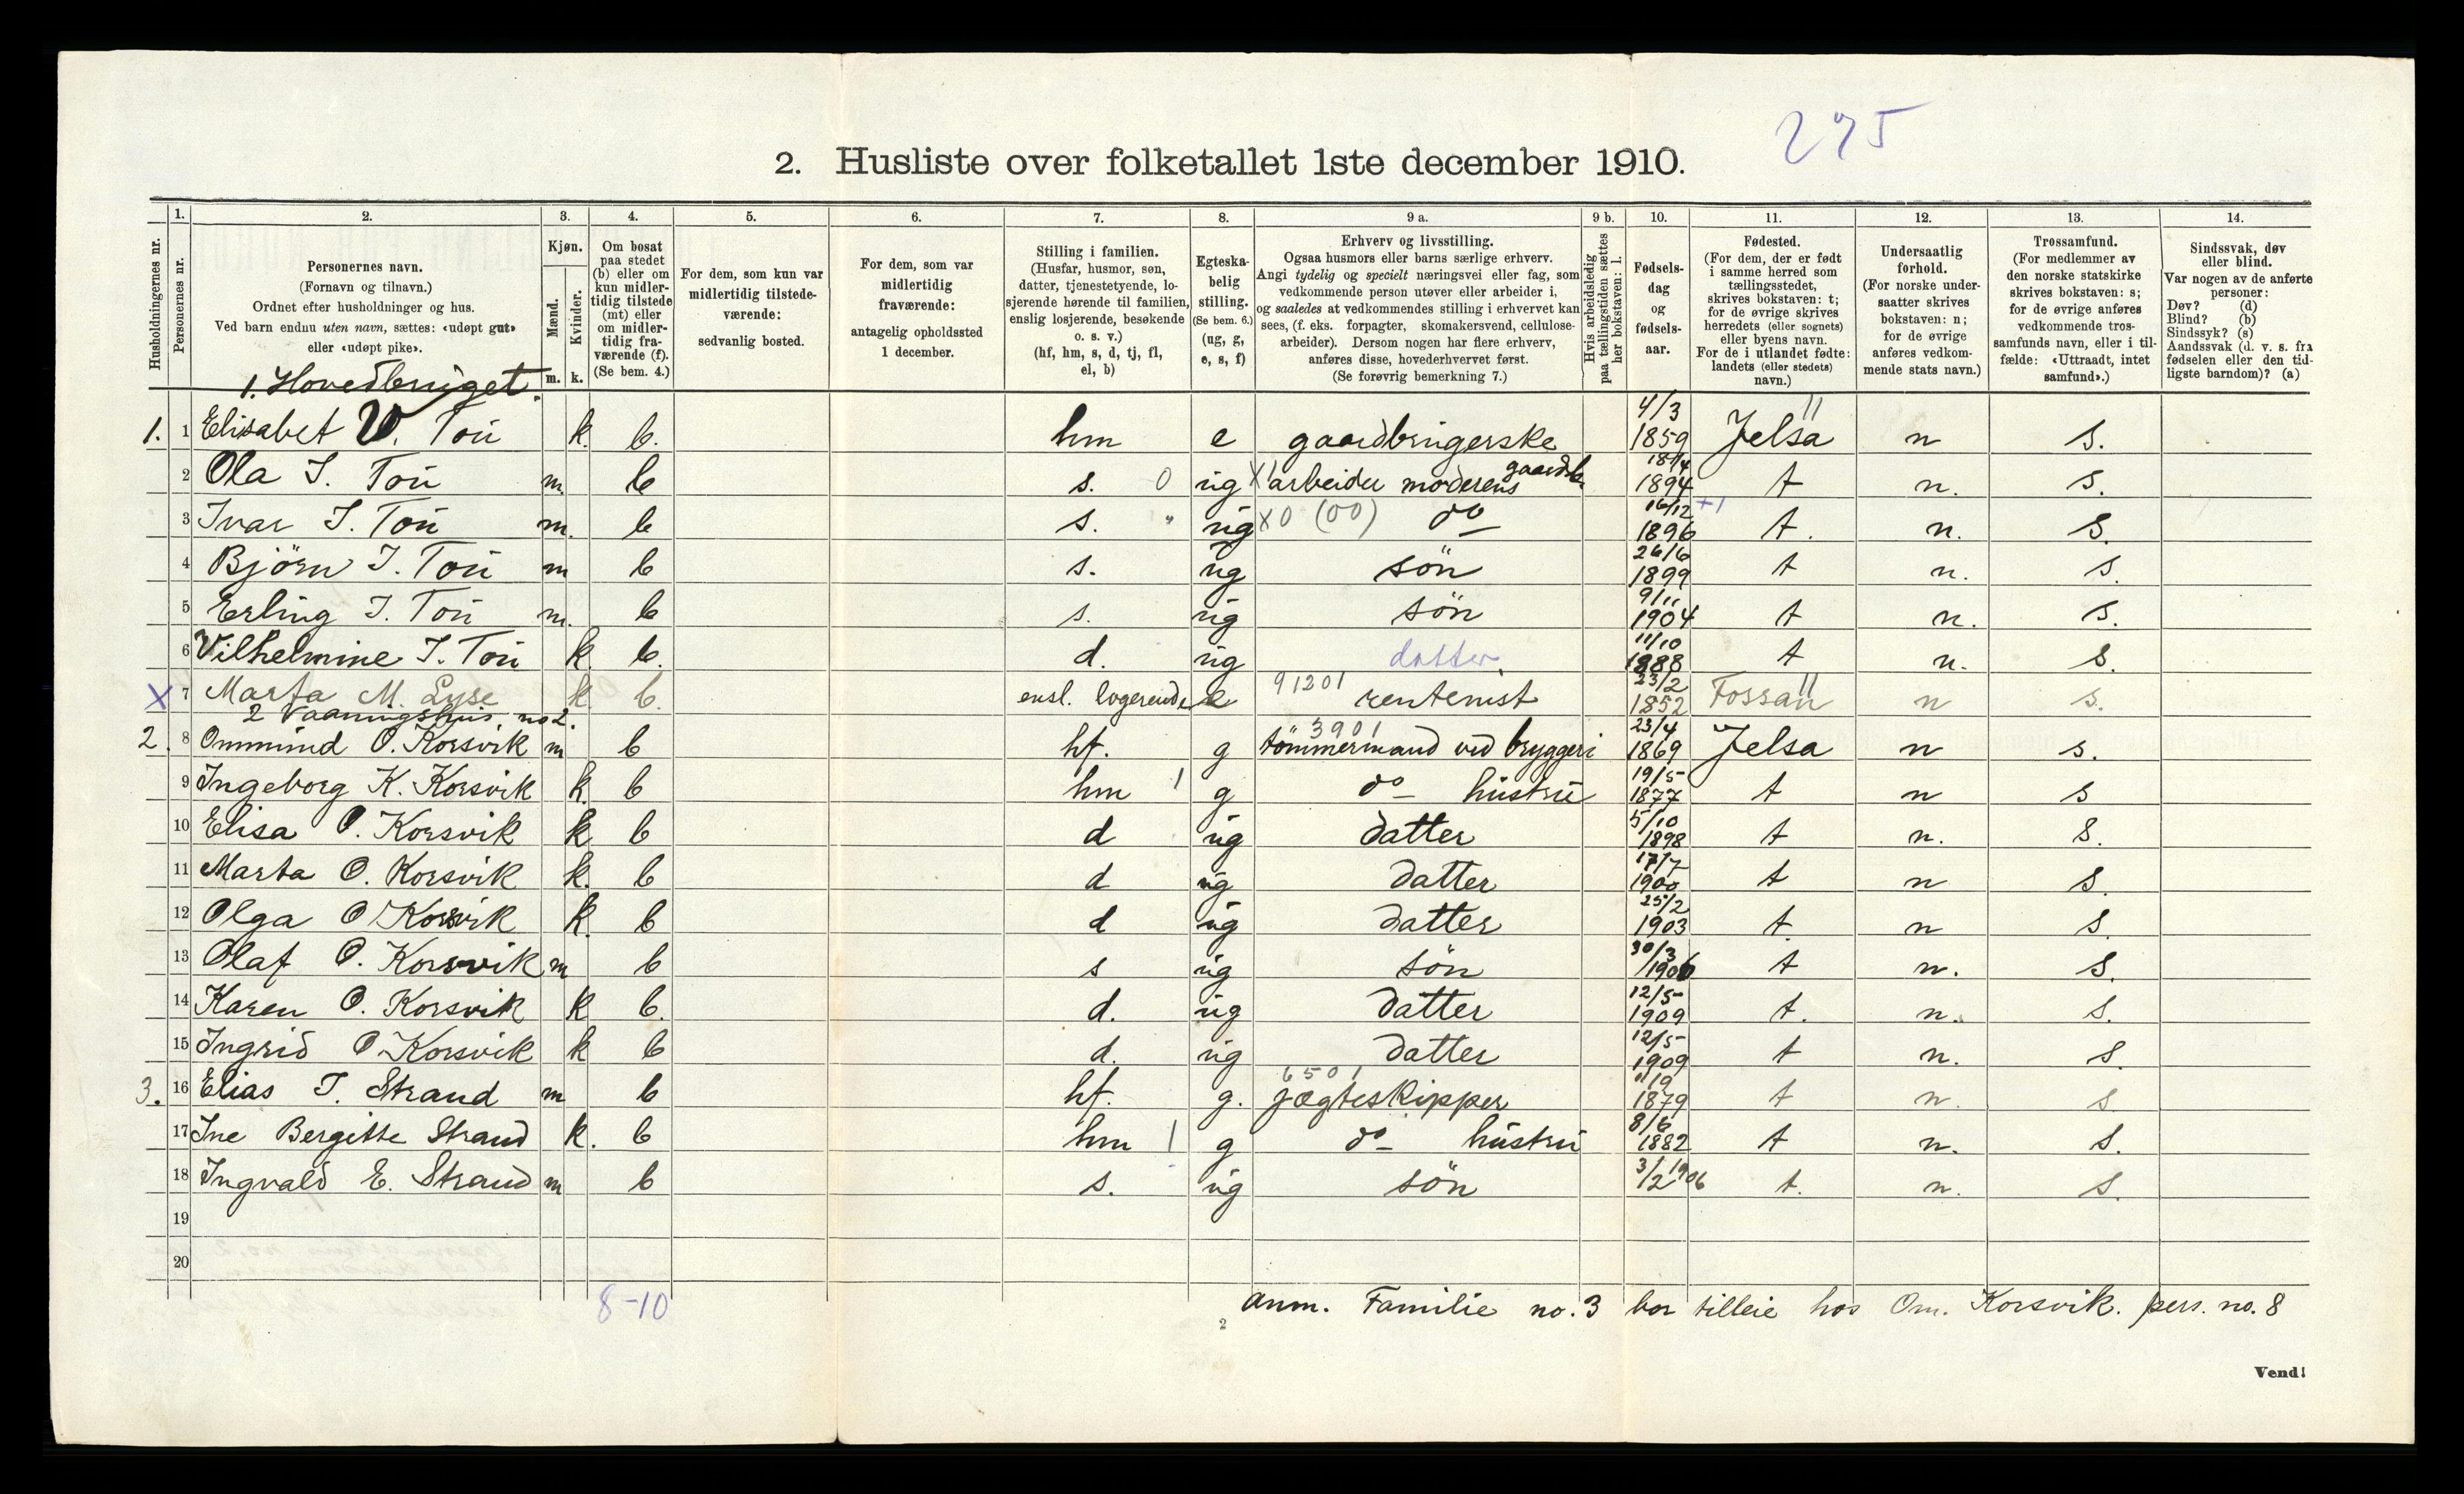 275
2. Husliste over folketallet 1ste december 1910.
Husholdningernes nr.
1. Personernes nr.
2. Personernes navn. (Fornavn og tilnavn.) Ordnet efter husholdninger og hus. Ved barn endnu uten navn, sættes: «udøpt gut» eller «udøpt pike».
3. Kjøn. Mænd. m. Kvinder. k.
4. Om bosat paa stedet (b) eller om kun midlertidig tilstede (mt) eller om midlertidig fraværende (f). (Se bem. 4.)
5. For dem, som kun var midlertidig tilstedeværende: sedvanlig bosted.
6. For dem, som var midlertidig fraværende: antagelig opholdssted 1 december.
7. Stilling i familien. (Husfar, husmor, søn, datter, tjenestetyende, losjerende hørende til familien, enslig losjerende, besøkende o. s. v.) (hf, hm, s, d, tj, fl, el, b)
8. Egteskabelig stilling. (Se bem. 6.) (ug, g, e, s, f)
9 a. Erhverv og livsstilling. Ogsaa husmors eller barns særlige erhverv. Angi tydelig og specielt næringsvei eller fag, som vedkommende person utøver eller arbeider i, og saaledes at vedkommendes stilling i erhvervet kan sees, (f. eks. forpagter, skomakersvend, cellulosearbeider). Dersom nogen har flere erhverv, anføres disse, hovederhvervet først. (Se forøvrig bemerkning 7.)
9 b. Hvis arbeidsledig paa tællingstiden sættes her bokstaven: l.
10. Fødselsdag og fødselsaar.
11. Fødested. (For dem, der er født i samme herred som tællingsstedet, skrives bokstaven: t; for de øvrige skrives herredets (eller sognets) eller byens navn. For de i utlandet fødte: landets (eller stedets) navn.)
12. Undersaatlig forhold. (For norske undersaatter skrives bokstaven: n; for de øvrige anføres vedkommende stats navn.)
13. Trossamfund. (For medlemmer av den norske statskirke skrives bokstaven: s; for de øvrige anføres vedkommende trossamfunds navn, eller i tilfælde: «Uttraadt, intet samfund».)
14. Sindssvak, døv eller blind. Var nogen av de anførte personer: Døv? (d) Blind? (b) Sindssyk? (s) Aandssvak (d. v. s. fra fødselen eller den tidligste barndom)? (a)
1. Hovedbruget.
1. 1 Elisabet V. Tou k. b. hm e gaardbrugerske 4/3 1859 Jelsa n s.
2 Ola I. Tou m. b s. 0 ug X1 arbeider moderens gaardb. 18/4 1894 t n. s.
3 Ivar I. Tou m. b s. " ug X0 (00) do 16/12 1896 +1 t. n. s.
4 Björn I. Tou m b s. ug sön 26/6 1899 t n. s.
5 Erling I. Tou m. b s. ug sön 9/11 1904 t n. s.
6 Vilhelmine I. Tou k. b. d. ug datter 11/10 1888 t n. s.
X 7 Marta M. Lyse k. b. ensl. logerende e 91201 rentenist 23/2 1852 Fossan n s.
2 Vaaningshus, no 2.
2. 8 Ommund O. Korsvik m b hf. g 3901 tömmermand ved bryggeri 23/4 1869 Jelsa n s.
9 Ingeborg K. Korsvik k. b hm 1 g do hustru 19/5 1877 t n s
10 Elisa O. Korsvik k b d ug datter 5/10 1898 t n. s.
11 Marta O. Korsvik k. b d ug datter 17/7 1900 t n s.
12 Olga O Korsvik k. b d ug datter 25/2 1903 t. n s.
13 Olaf O. Korsvik m b s ug sön 30/3 1906 t n. s.
14 Karen O. Korsvik k b. d. ug datter 12/5 1909 t. n. s.
15 Ingrid O Korsvik k b d. ug datter 12/5 1909 t n. s
3. 16 Elias T. Strand m b hf. g. 6501 jægteskipper /9 1879 t n. s
17 Ine Bergitte Strand k. b hm 1 g do hustru 8/6 1882 t n. s.
18 Ingvald E. Strand m b s. ug sön 3/2 1906 t. n. s.
19
20
8-10
Anm. Familie no. 3 bor tilleie hos Om. Korsvik. pers. no. 8
2
Vend!